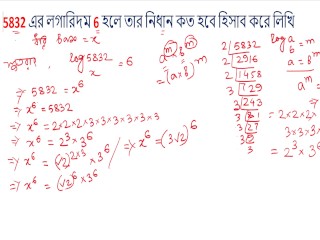 5832 এর লগারিদম 6 হলে তার নিধান কত হবে হিসাব করে লিখি
ধরি, base = x
log 5832 x = 6
⇒ 5832 = x⁶
⇒ x⁶ = 5832
⇒ x⁶ = 2×2×2×3×3×3×3×3×3
⇒ x⁶ = 2³ × 3⁶
⇒ x⁶ = (√2)^2×3 × 3⁶
⇒ x⁶ = (√2)⁶ × 3⁶
⇒ x⁶ = (3√2)⁶
a^m × b^m
= (a×b)^m
2 | 5832
2 | 2916
2 | 1458
3 | 729
3 | 243
3 | 81
3 | 27
3 | 9
3
log a b = m
a = b^m
a^m
= 2×2×2×
3×3×3×
= 2³ × 3⁶